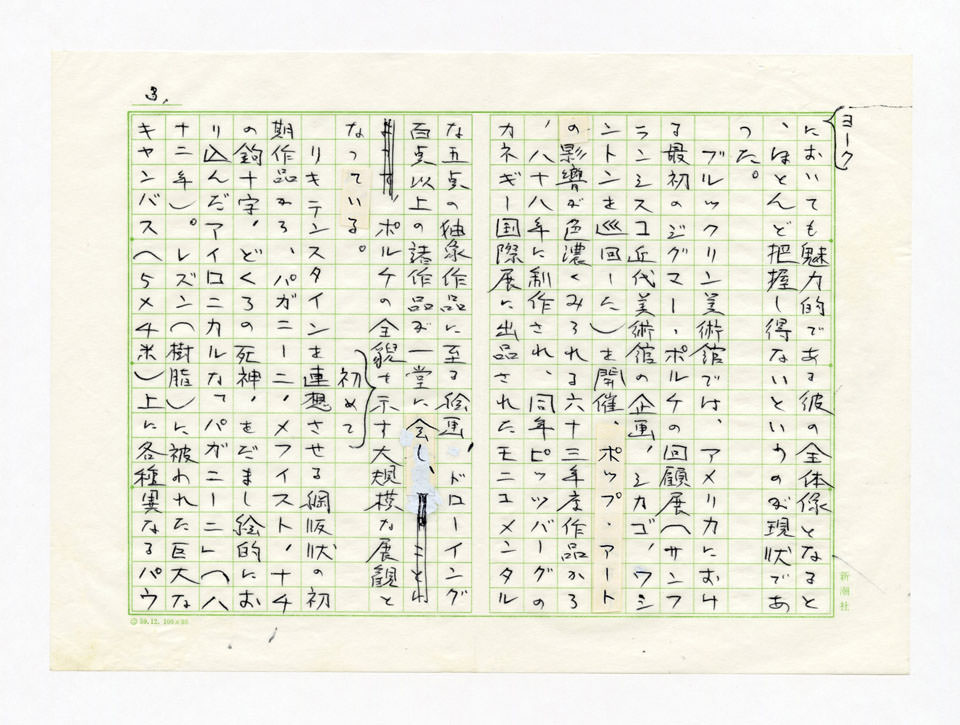 3,
ヨーク
においても魅力的である彼の全体像となると
、ほとんど把握し得ないというのが現状であ
った。
　ブルックリン美術館では、アメリカにおけ
る最初のジグマー・ポルケの回顧展（サンフ
ランシスコ近代美術館の企画、シカゴ、ワシ
ントンを巡回した）を開催、ポップ・アート
の影響が色濃くみられる六十三年度作品から
、八十八年に制作され、同年ピッツバーグの
カネギー国際展に出品されたモニュメンタル
な五点の抽象作品に至る絵画、ドローイング
百点以上の諸作品が一堂に会し、
ポルケの全貌を示す大規模な展観と
初めて
なっている。
　リキテンスタインを連想させる網版状の初
期作品から、パガニーニ、メフィスト、十4
の鉤十字、どくろの死神、をだまし絵的にお
り込んだアイロニカルな「パガニーニ」（八
十二年）。レズン（樹脂）に被われた巨大な
キャンバス（5×4米）上に各種異なるパウ
新潮社
59.12. 100×80